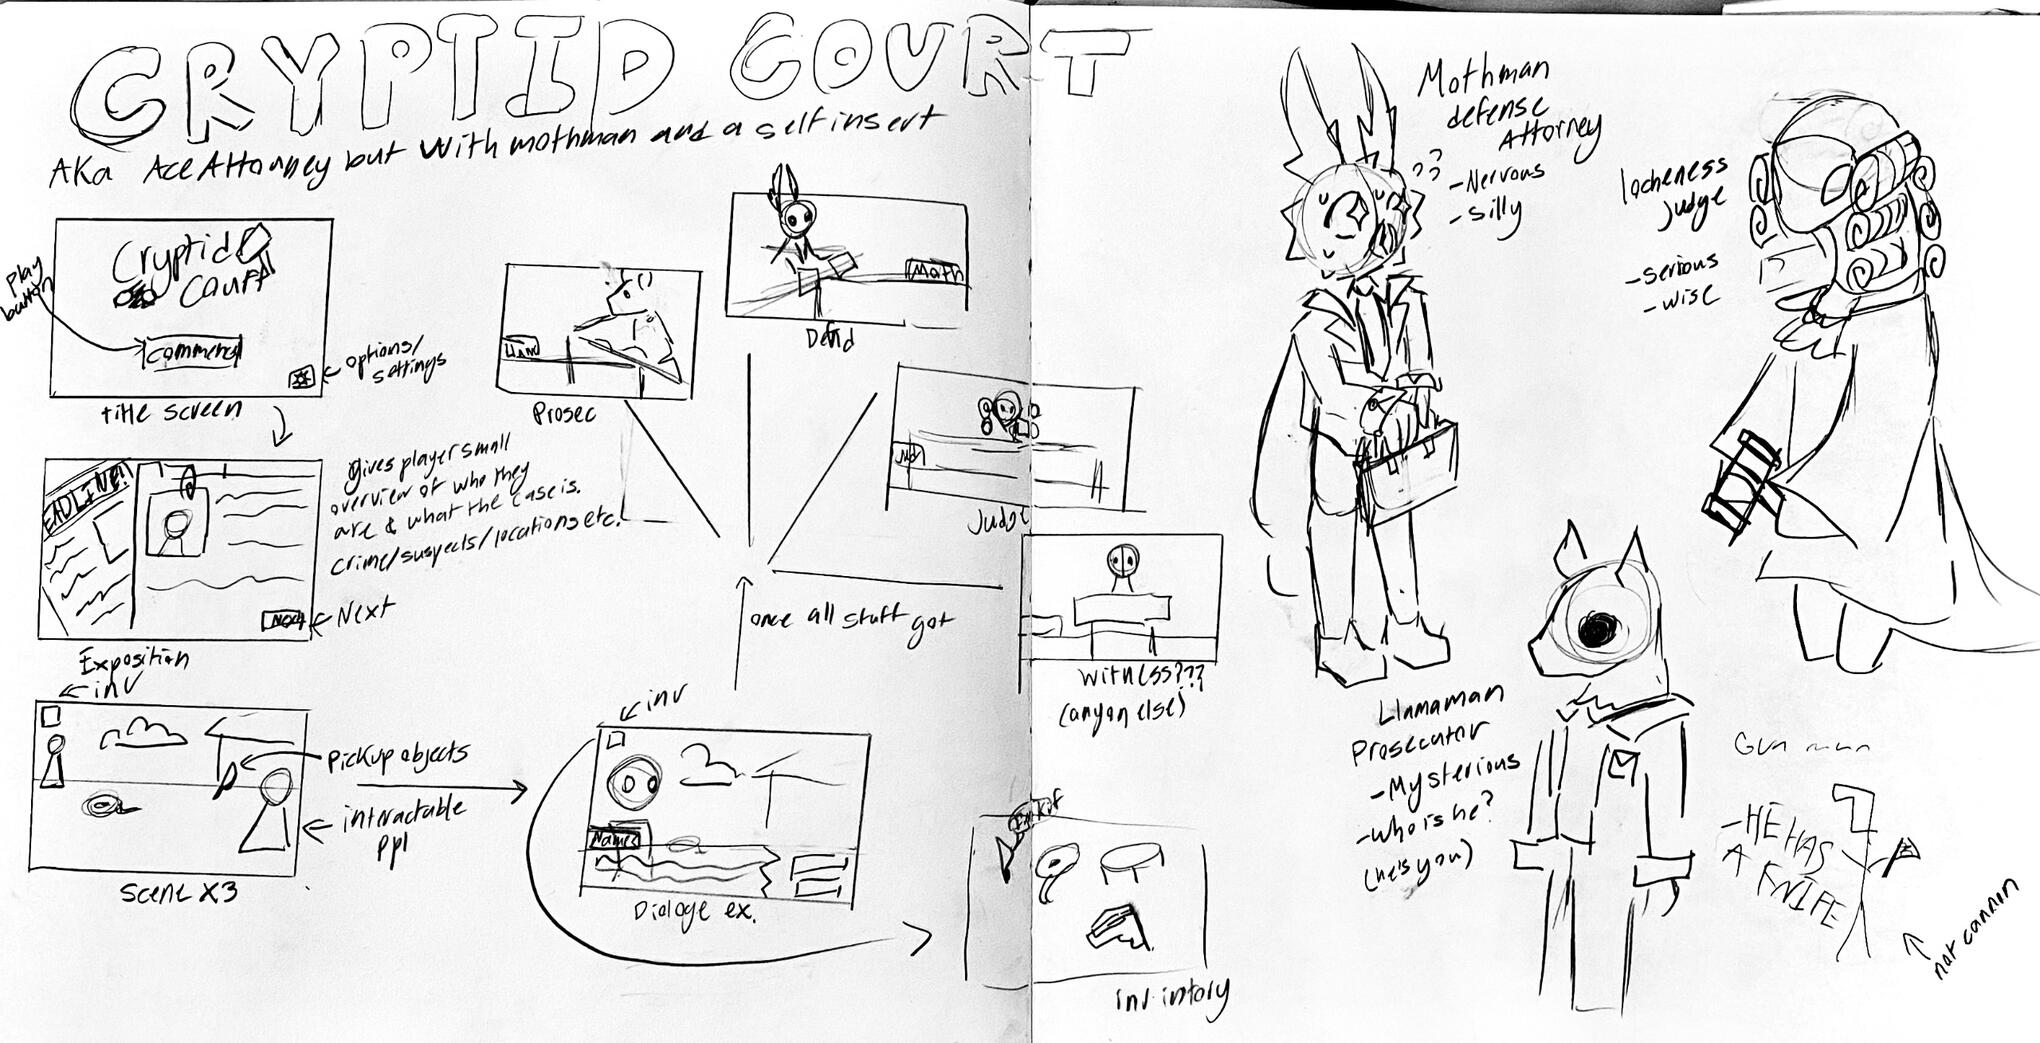 CRYPTID COURT
AKa Ace Attorney but with mothman and a self insert
Cryptid
Court
play
button
commence
options/
settings
title screen
EADLINE!
gives player small
overview of who they
are & what the case is.
crime/suspects/locations etc.
Next
Next
Exposition
inv
pickup objects
interactable
ppl
Scene X3
inv
Names
Dialoge ex.
Prosec
Moth
Defnd
Judge
once all stuff got
witness???
(anyon else)
inv.intory
Mothman
defense
Attorney
??
-Nervous
-silly
locheness
judge
-serious
-wise
Llamaman
Prosecutor
-Mysterious
-who is he?
(he's you)
Gun man
-HE HAS
A KNIFE
not cannon